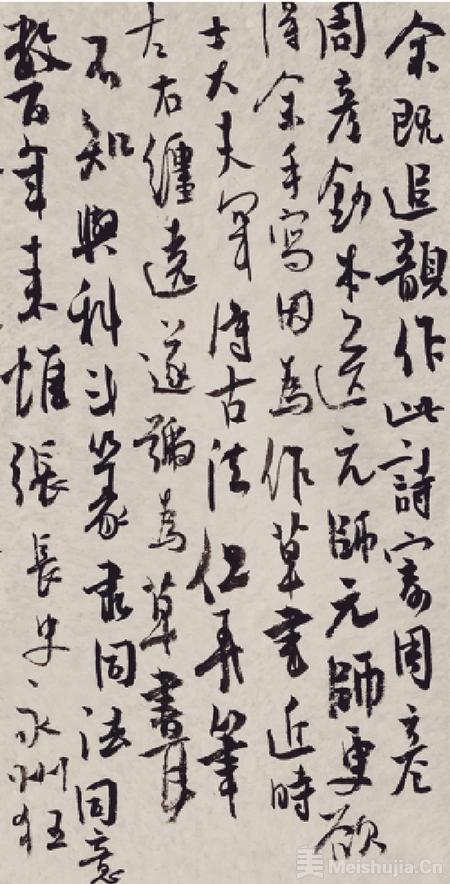 余既追韻作此詩寄周彦
周彦鈔本送元師元師更欲
得余手寫因為作草書近時
士大夫罕得古法但弄筆
左右纏遶遂號為草書耳
不知與科斗篆隶同法同意
數百年來惟張長史永州狂
美 Meishujia.Cn